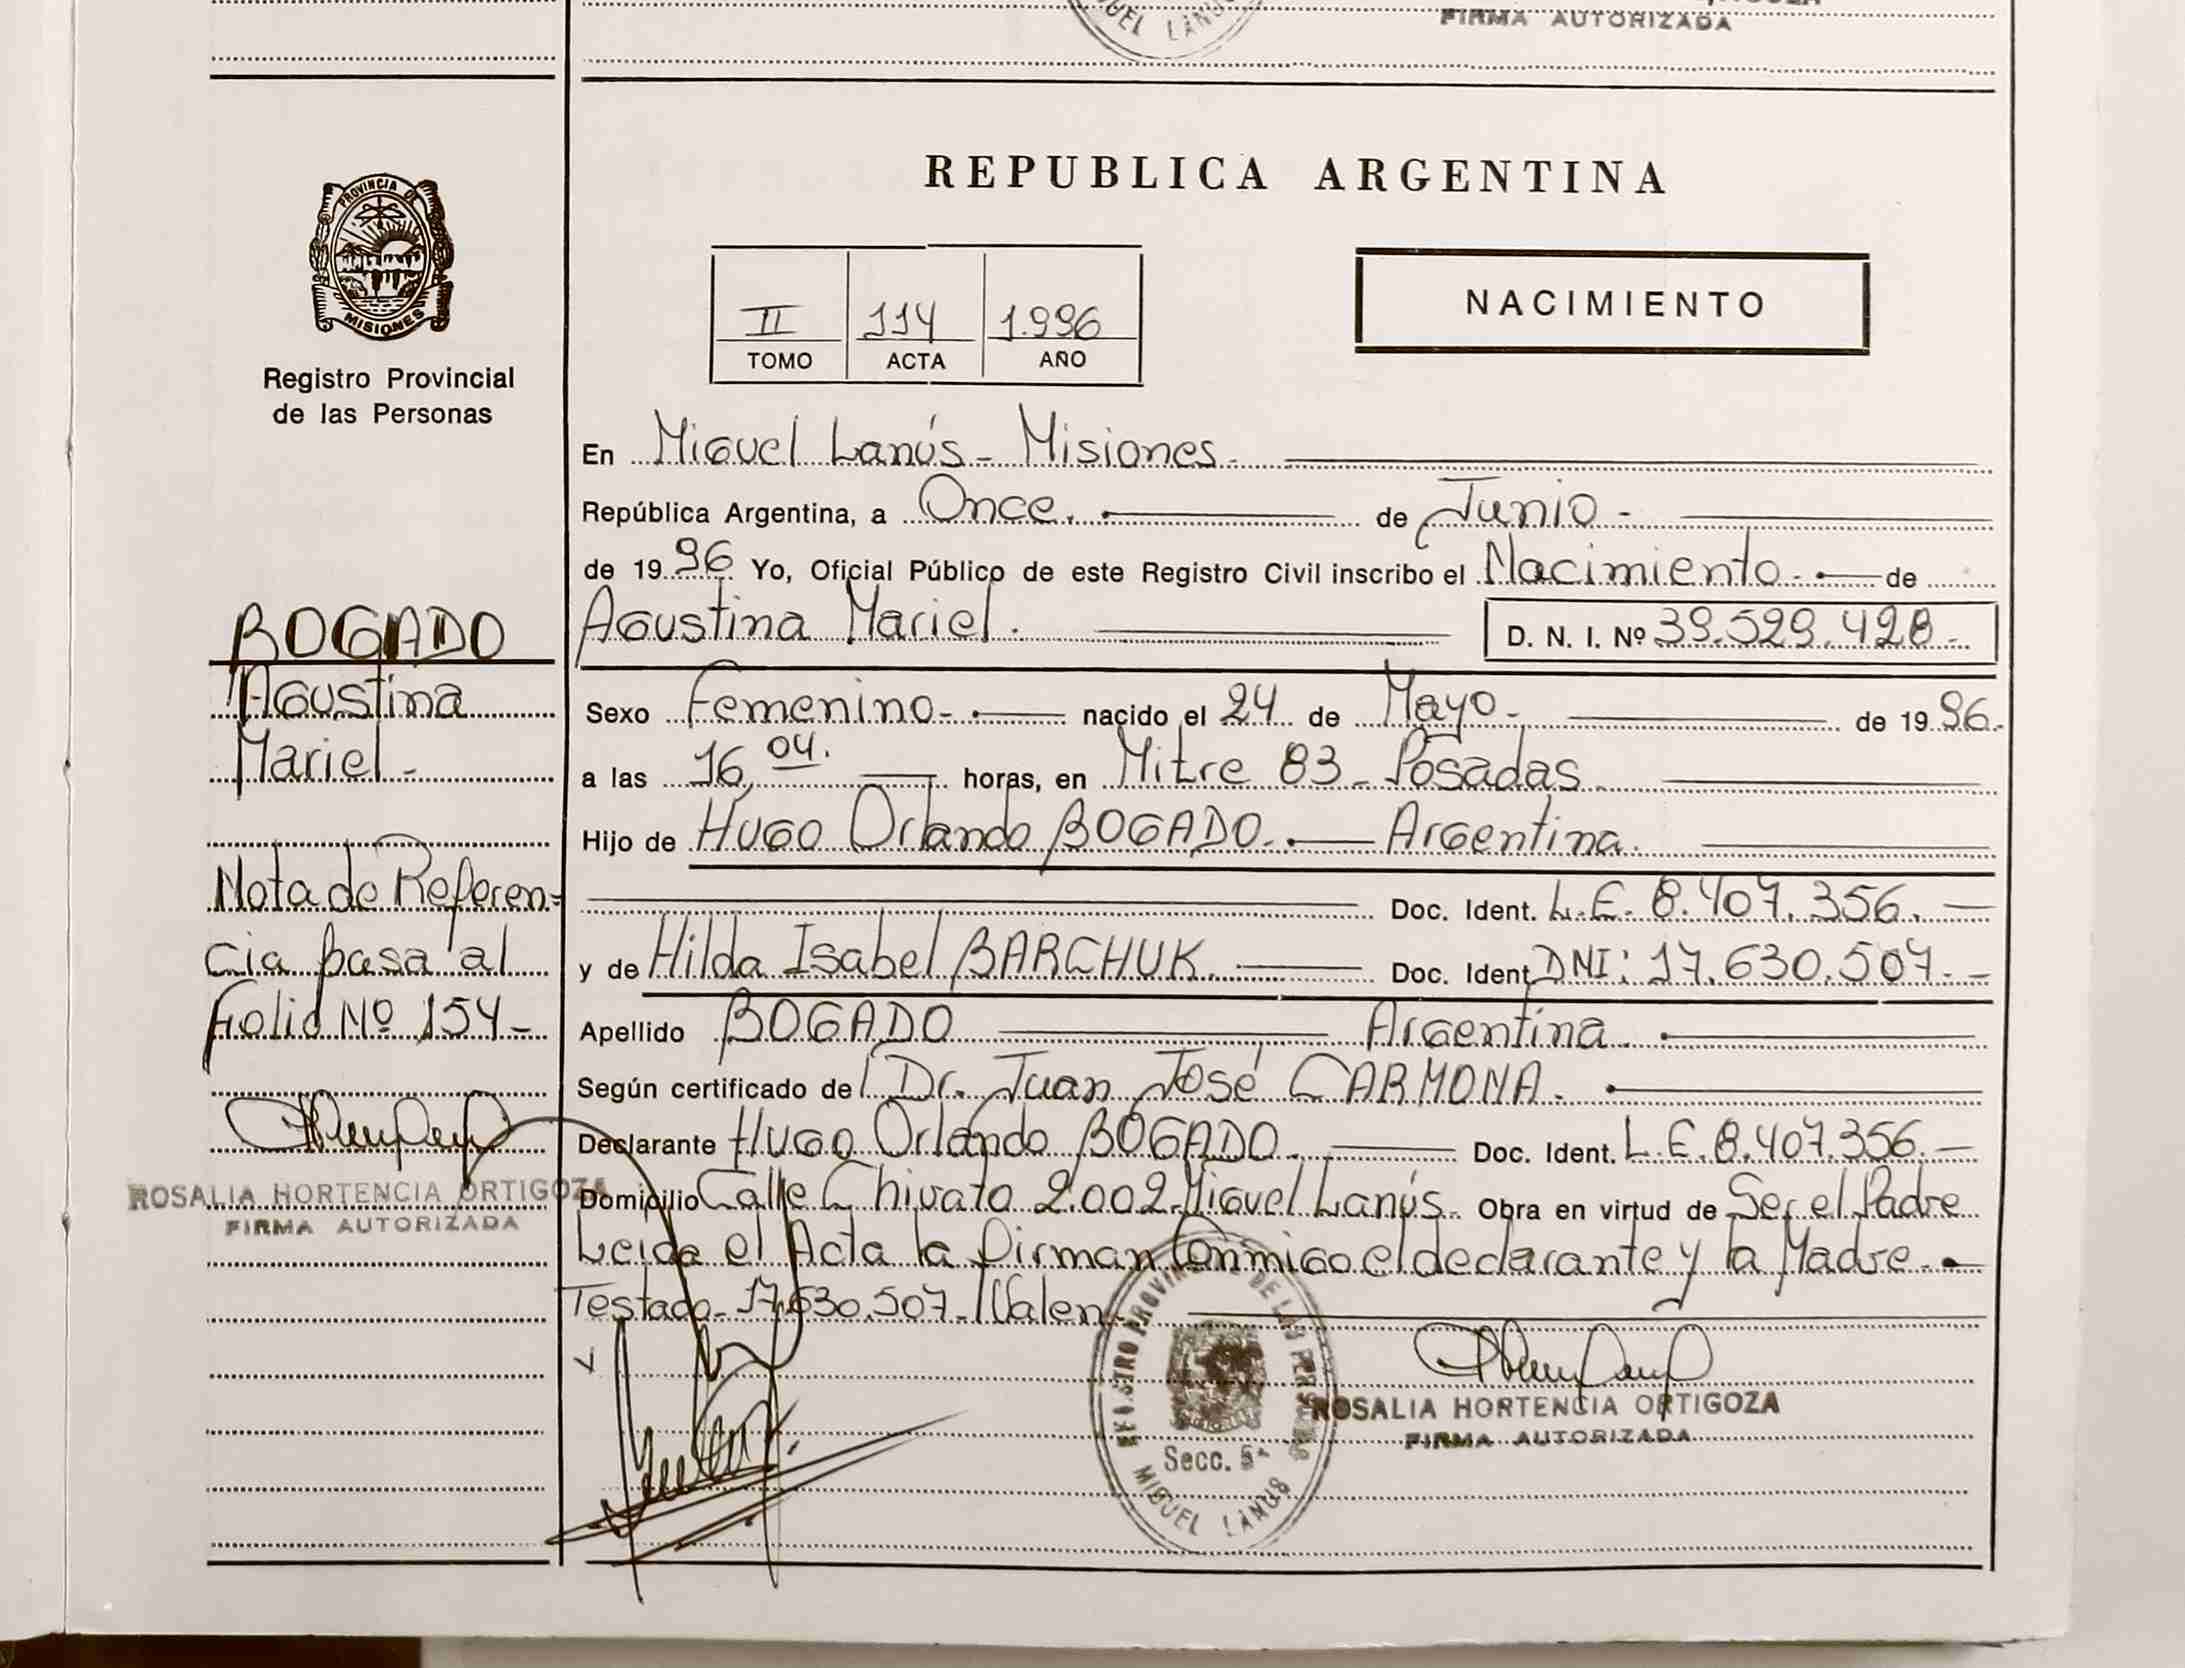 FIRMA AUTORIZADA
REPUBLICA ARGENTINA
PROVINCIA DE MISIONES
Registro Provincial
de las Personas
II 114 1.996
TOMO ACTA AÑO
NACIMIENTO
En Miguel Lanús - Misiones.
República Argentina, a Once. de Junio -
de 1996 Yo, Oficial Público de este Registro Civil inscribo el Nacimiento. de
Agustina Mariel. D. N. I. Nº 39.529.428.-
Sexo Femenino. nacido el 24 de Mayo. de 1996.
a las 16 04. horas, en Mitre 83 - Posadas
Hijo de Hugo Orlando BOGADO. Argentina.
Doc. Ident. L.E. 8.407.356.
y de Hilda Isabel BARCHUK. Doc. Ident. DNI: 17.630.507.-
Apellido BOGADO Argentina.
Según certificado de Dr. Juan José CARMONA.
Declarante Hugo Orlando BOGADO. Doc. Ident. L.E. 8.407.356.
Domicilio Calle Chivato 2.002 - Miguel Lanús. Obra en virtud de Ser el Padre
Leida el Acta la firman Conmigo el declarante y la Madre.
Testado - 17.630.507 - Valen
BOGADO
Agustina
Mariel -
Nota de Referen-
cia pasa al
Folio Nº 154 -
ROSALIA HORTENCIA ORTIGOZA
FIRMA AUTORIZADA
REGISTRO PROVINCIAL DE LAS PERSONAS
Secc. 5ª
MIGUEL LANUS
ROSALIA HORTENCIA ORTIGOZA
FIRMA AUTORIZADA